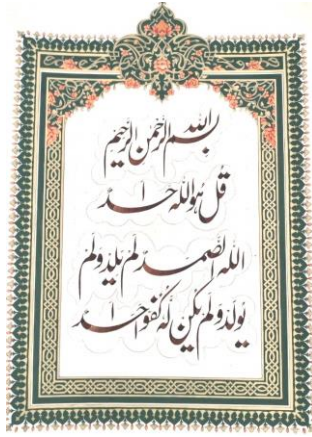 بسم الله الرحمن الرحیم
قل هو الله احد
الله الصمد لم یلد ولم
یولد ولم یکن له کفوا احد